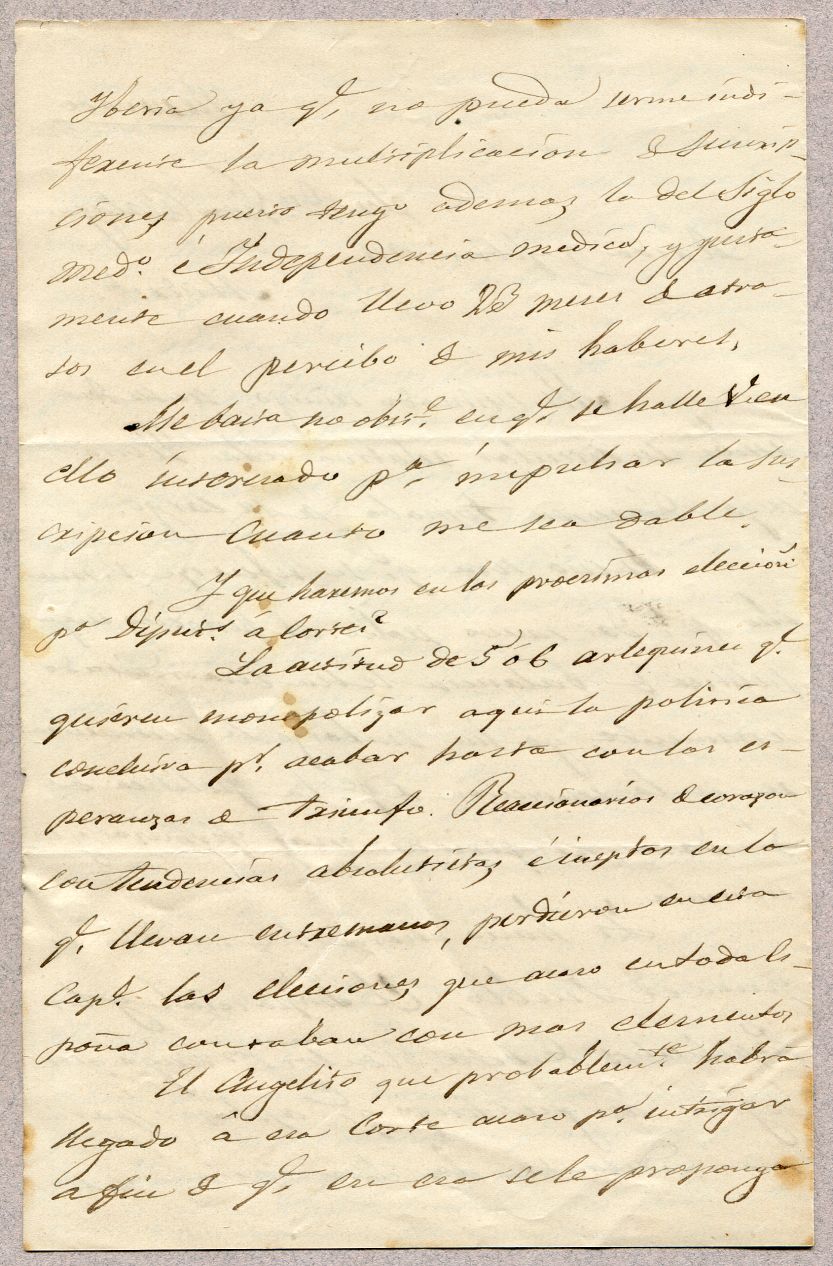 Yberia ya q.e no pueda serme indi-
ferente la multiplicacion de suscrip-
ciones puesto tengo ademas la del Siglo
Med.o é Independencia medica, y justa-
mente cuando llevo 23 meses de atra-
sos en el percibo de mis haberes,
Me basta no obs.te en q.e se halle V. en
ello interesado p.a impulsar la sus-
cripcion cuanto me sea dable.
Y que haremos en las procsimas eleccion.s
p.a Diput.s á Cortes?
La actitud de 5 ó 6 arlequines q.e
quieren monopolizar aqui la politica
concluira p.r acabar hasta con las es-
peranzas de triunfo. Reaccionarios de corazon
con tendencias absolutistas é ineptos en lo
q.e llevan entre manos, perdieron en esta
Cap.l las elecciones que acaso en toda Es-
paña contaban con mas elementos
El Angelito que probablem.te habrá
llegado á esa Corte acaso p.a intrigar
a fin de q.e en esa se le proponga